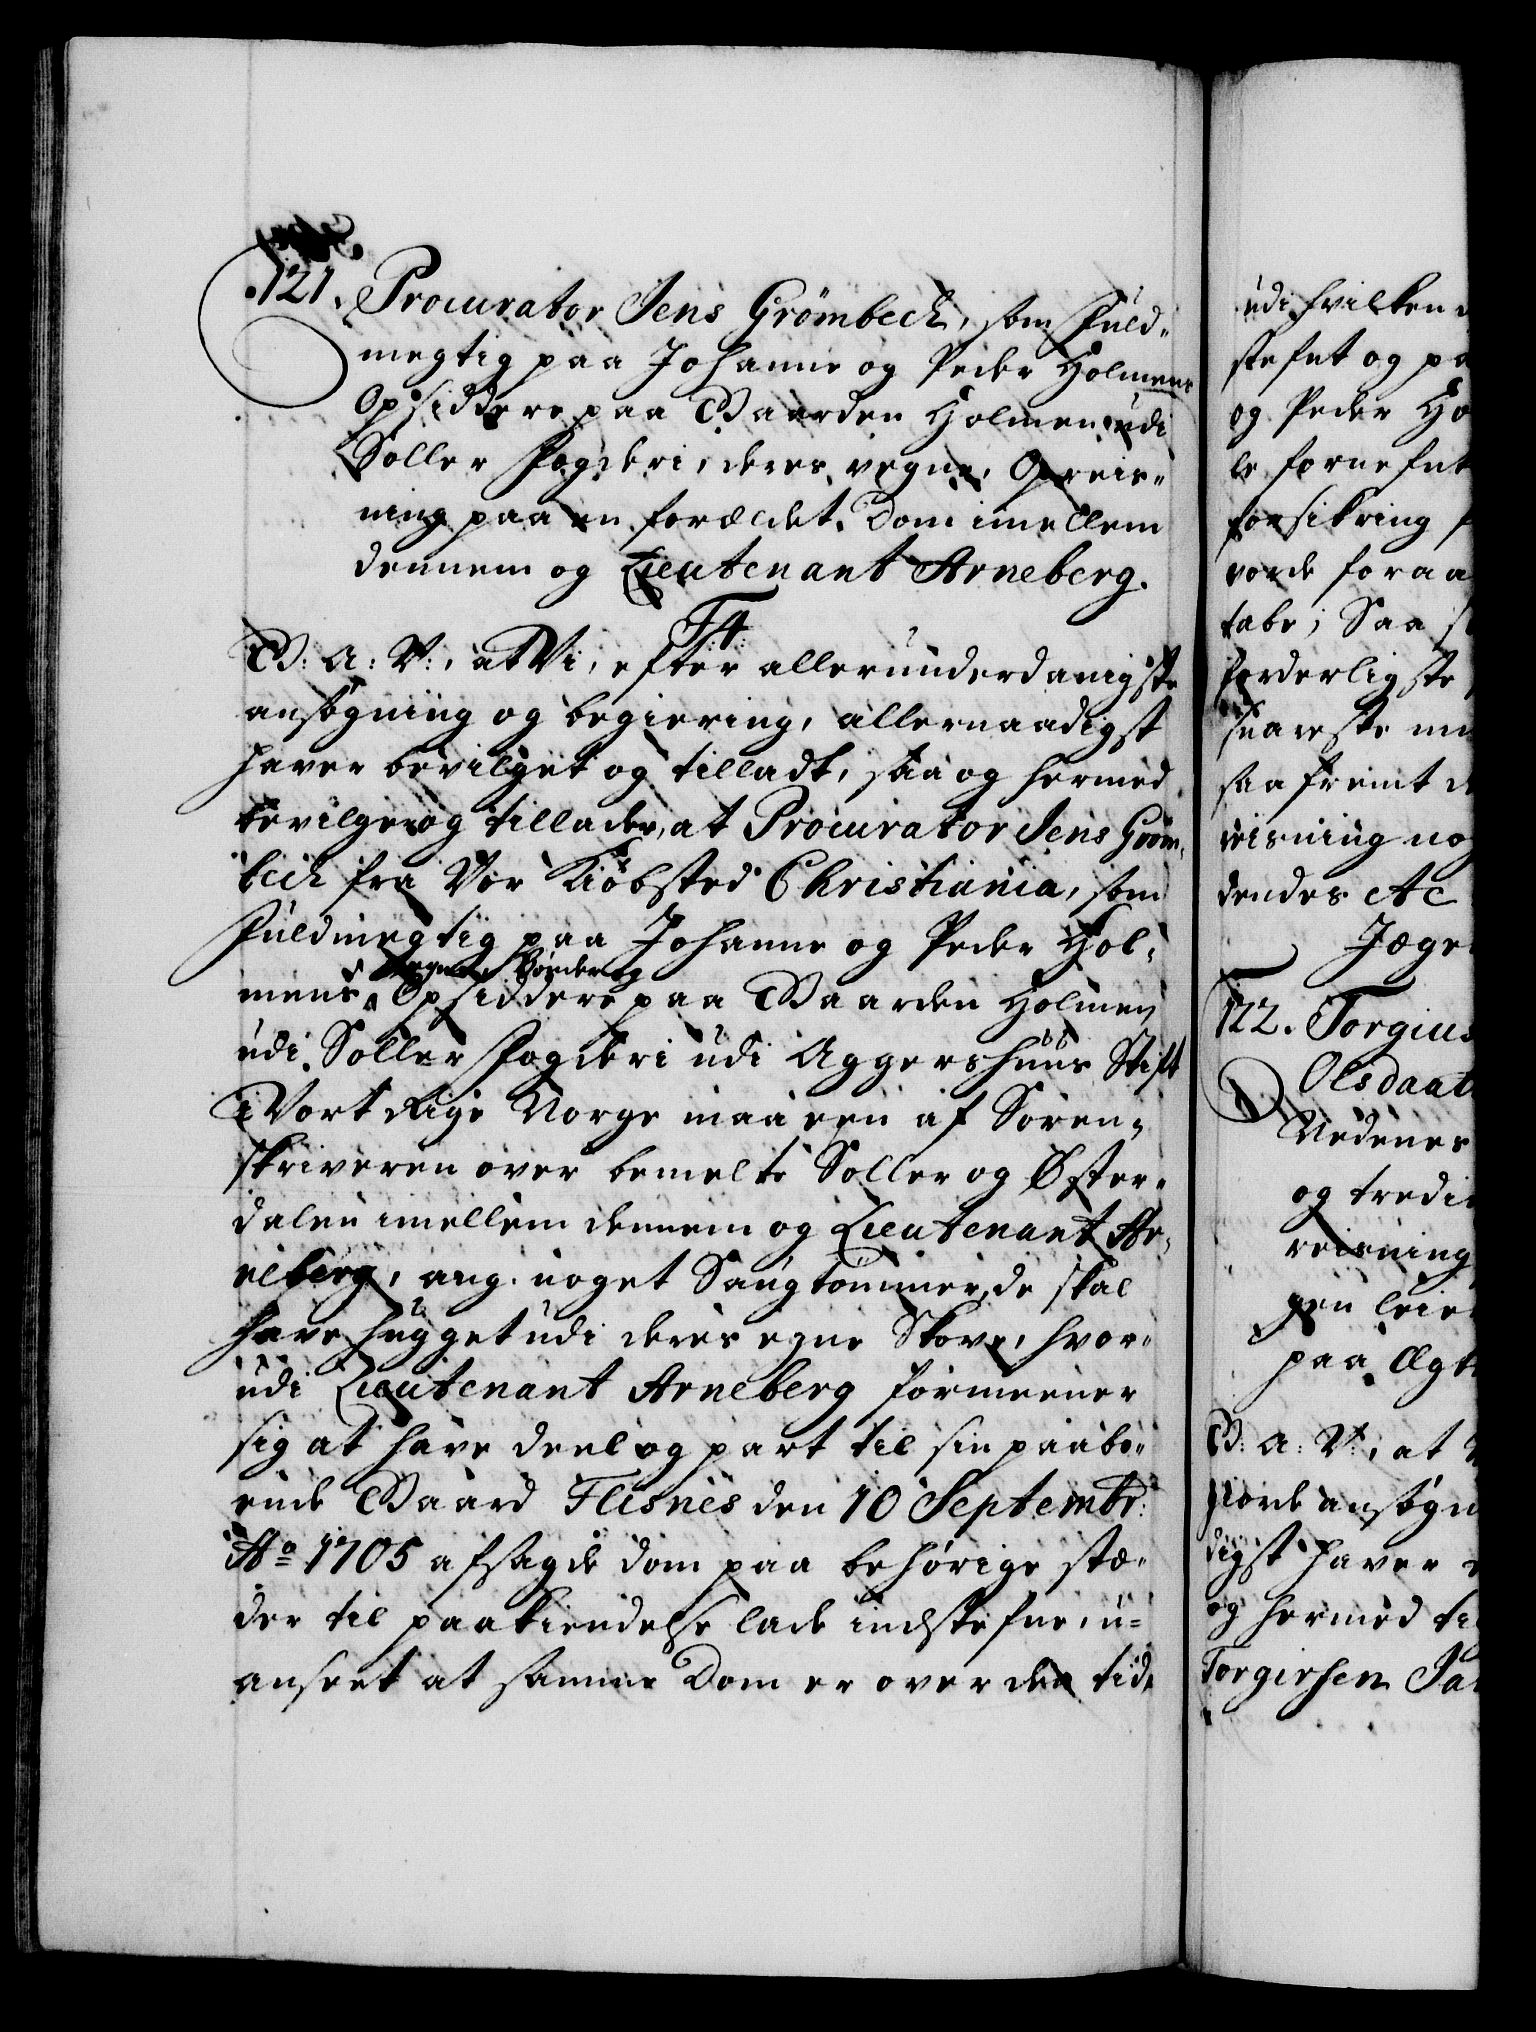 121. Procurator Jens Grømbech, som Fuld-
megtig paa Johanne og Peder Holmens
Opsiddere paa Gaarden Holmen udi
Soller Fogderi, deres vegne, Opreis-
ning paa en forældet Dom imellem
dennem og Lieutenant Arneberg.
F4.
G: A: V:, at Vi, efter allerunderdanigste
ansøgning og begiering, allernaadigst
haver bevilget og tilladt, saa og hermed
bevilger og tillader, at Procurator Jens Grøm-
bech fra Vor Kiøbsted Christiania, som
Fuldmegtig paa Johanne og Peder Hol-
mens vegne, Bønder og
Opsiddere paa Gaarden Holmen
udi Soller Fogderi udi Aggershuus Stift
i Vort Rige Norge maa een af Soren-
skriveren over bemelte Soller og Øster-
dalen imellem dennem og Lieutenant Ar-
neberg, ang. noget Saugtømmer, de skal
have hugget udi deres egne Skove, hvor-
udi Lieutenant Arneberg formeener
sig at have deel og part til sin paaboe-
ende Gaard Flisnes den 10 Septembr:
Ao 1705 afsagde dom paa behørige stæ-
der til paakiendelse lade indstefne, u-
anseet at samme Dom er over den tid,
udi hvilken
stefnt og pa
og Peder Ho
le fornefnt
forsikring
vorde foraa
tabe; Saa
forderligste
snareste
saa fremt
reisning
dendes Ac
Jæge
122. Torgius
Olsdaat
Nedenes
og tredi
reisning
gen leie
paa Ægt
G: A: V:, at
giorde ansøgn
digst haver
og hermed ti
Torgiersen Ja